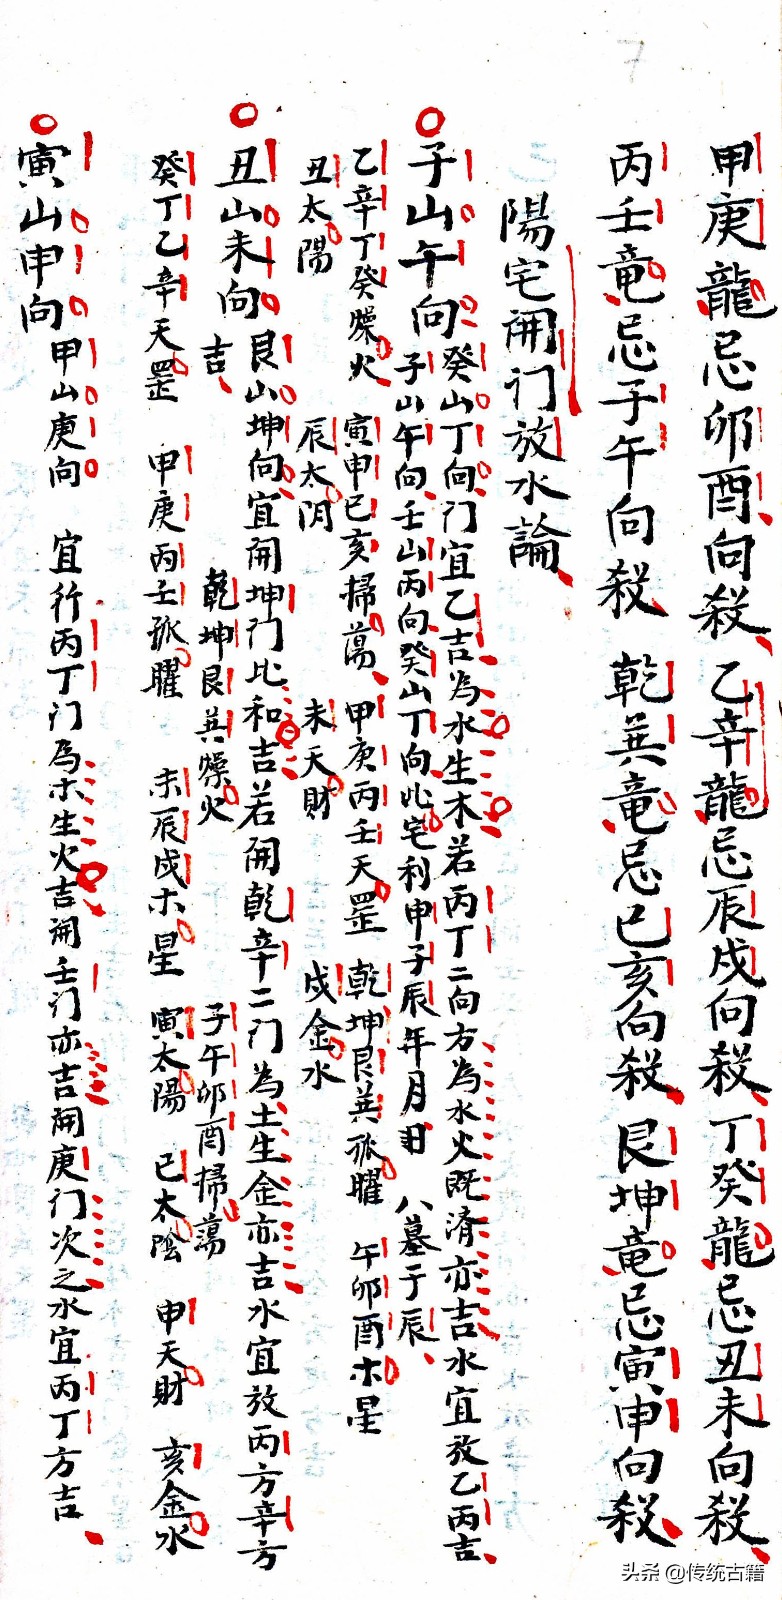 7
甲庚龍忌卯酉向殺 乙辛龍忌辰戌向殺 丁癸龍忌丑未向殺
丙壬竜忌子午向殺 乾巽竜忌巳亥向殺 艮坤竜忌寅申向殺
陽宅開门放水論
子山午向 癸山丁向门宜乙吉為水生木若丙丁二向方為水火既済亦吉水宜放乙丙吉
子山午向壬山丙向癸山丁向此宅利申子辰年月日 八墓于辰
乙辛丁癸燥火 寅申巳亥掃蕩 甲庚丙壬天罡 乾坤艮巽孤曜 午卯酉木星
丑太陽 辰太阴 未天財 戌金水
丑山未向 艮山坤向宜開坤门比和吉若開乾辛二门為土生金亦吉水宜放丙方辛方
吉 乾坤艮巽燥火 子午卯酉掃蕩
癸丁乙辛天罡 甲庚丙壬孤曜 未辰戌木星 寅太陽 巳太陰 申天財 亥金水
寅山申向 甲山庚向 宜行丙丁门為木生火吉開壬门亦吉開庚门次之水宜丙丁方吉
头条 @传统古籍